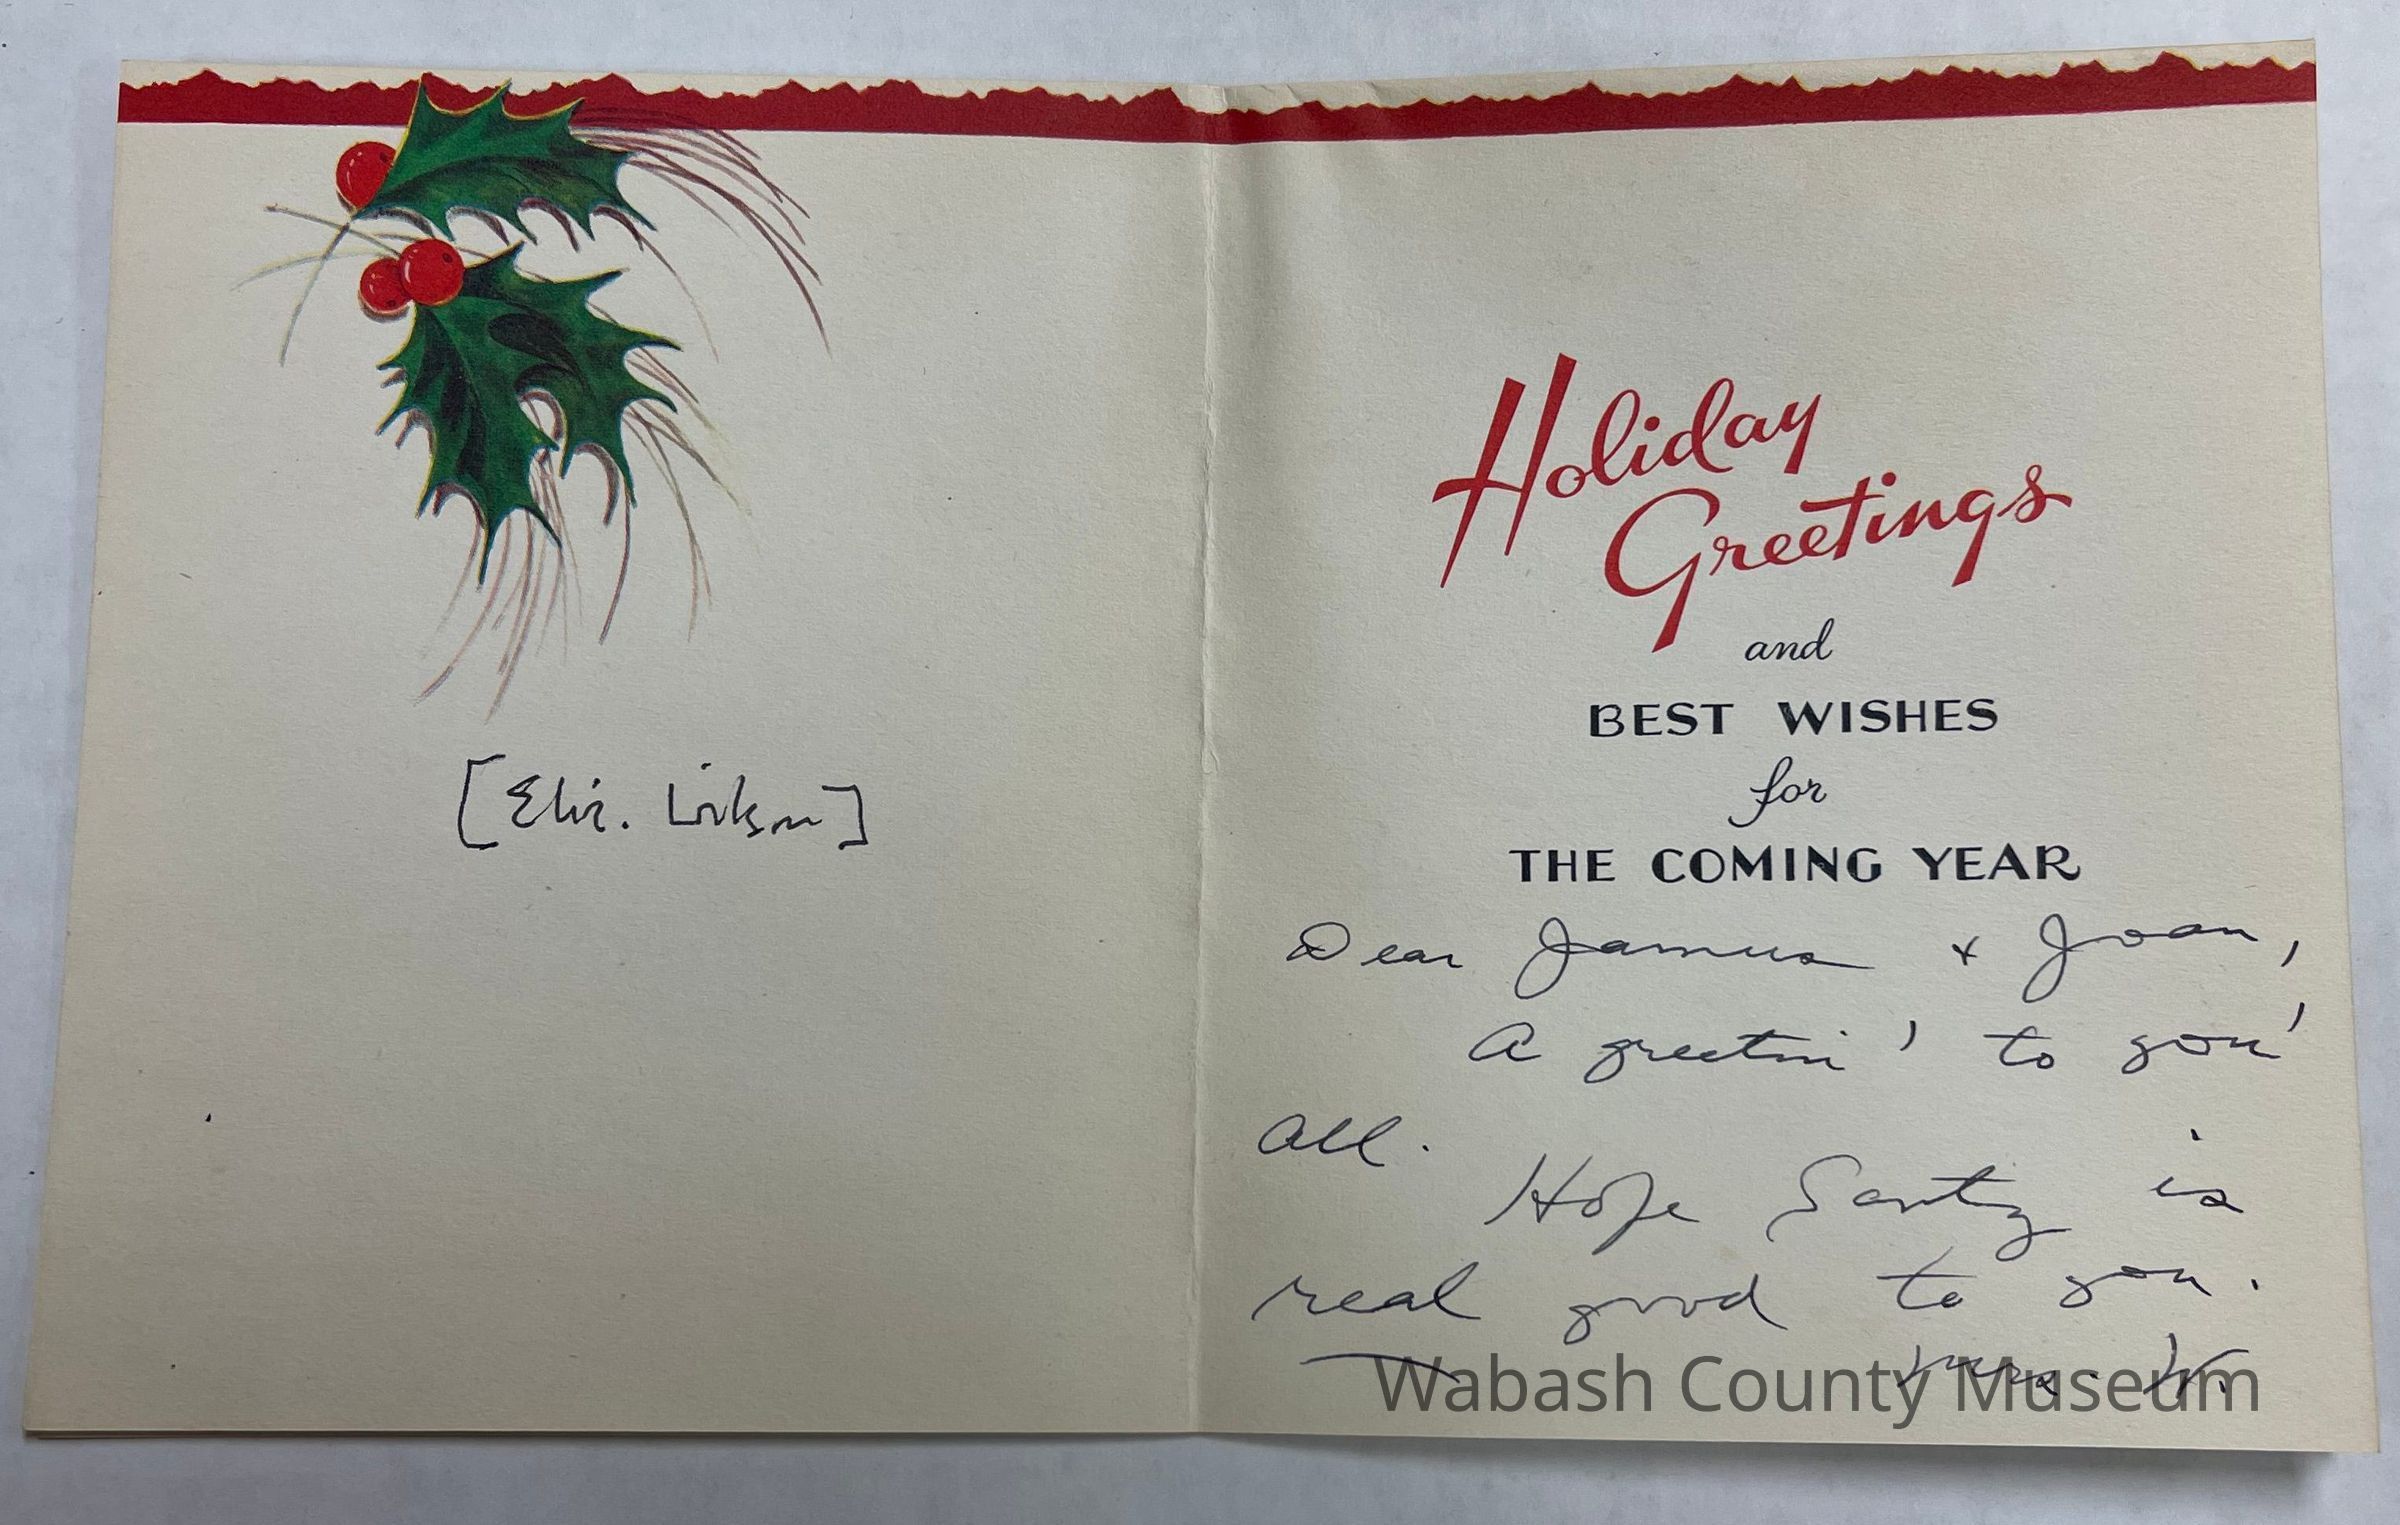 Holiday
Greetings
and
BEST WISHES
for
THE COMING YEAR
Dear James & Joan,
A greetin' to you'
all.
Hope Santy is
real good to you.
Mrs. W.
Wabash County Museum